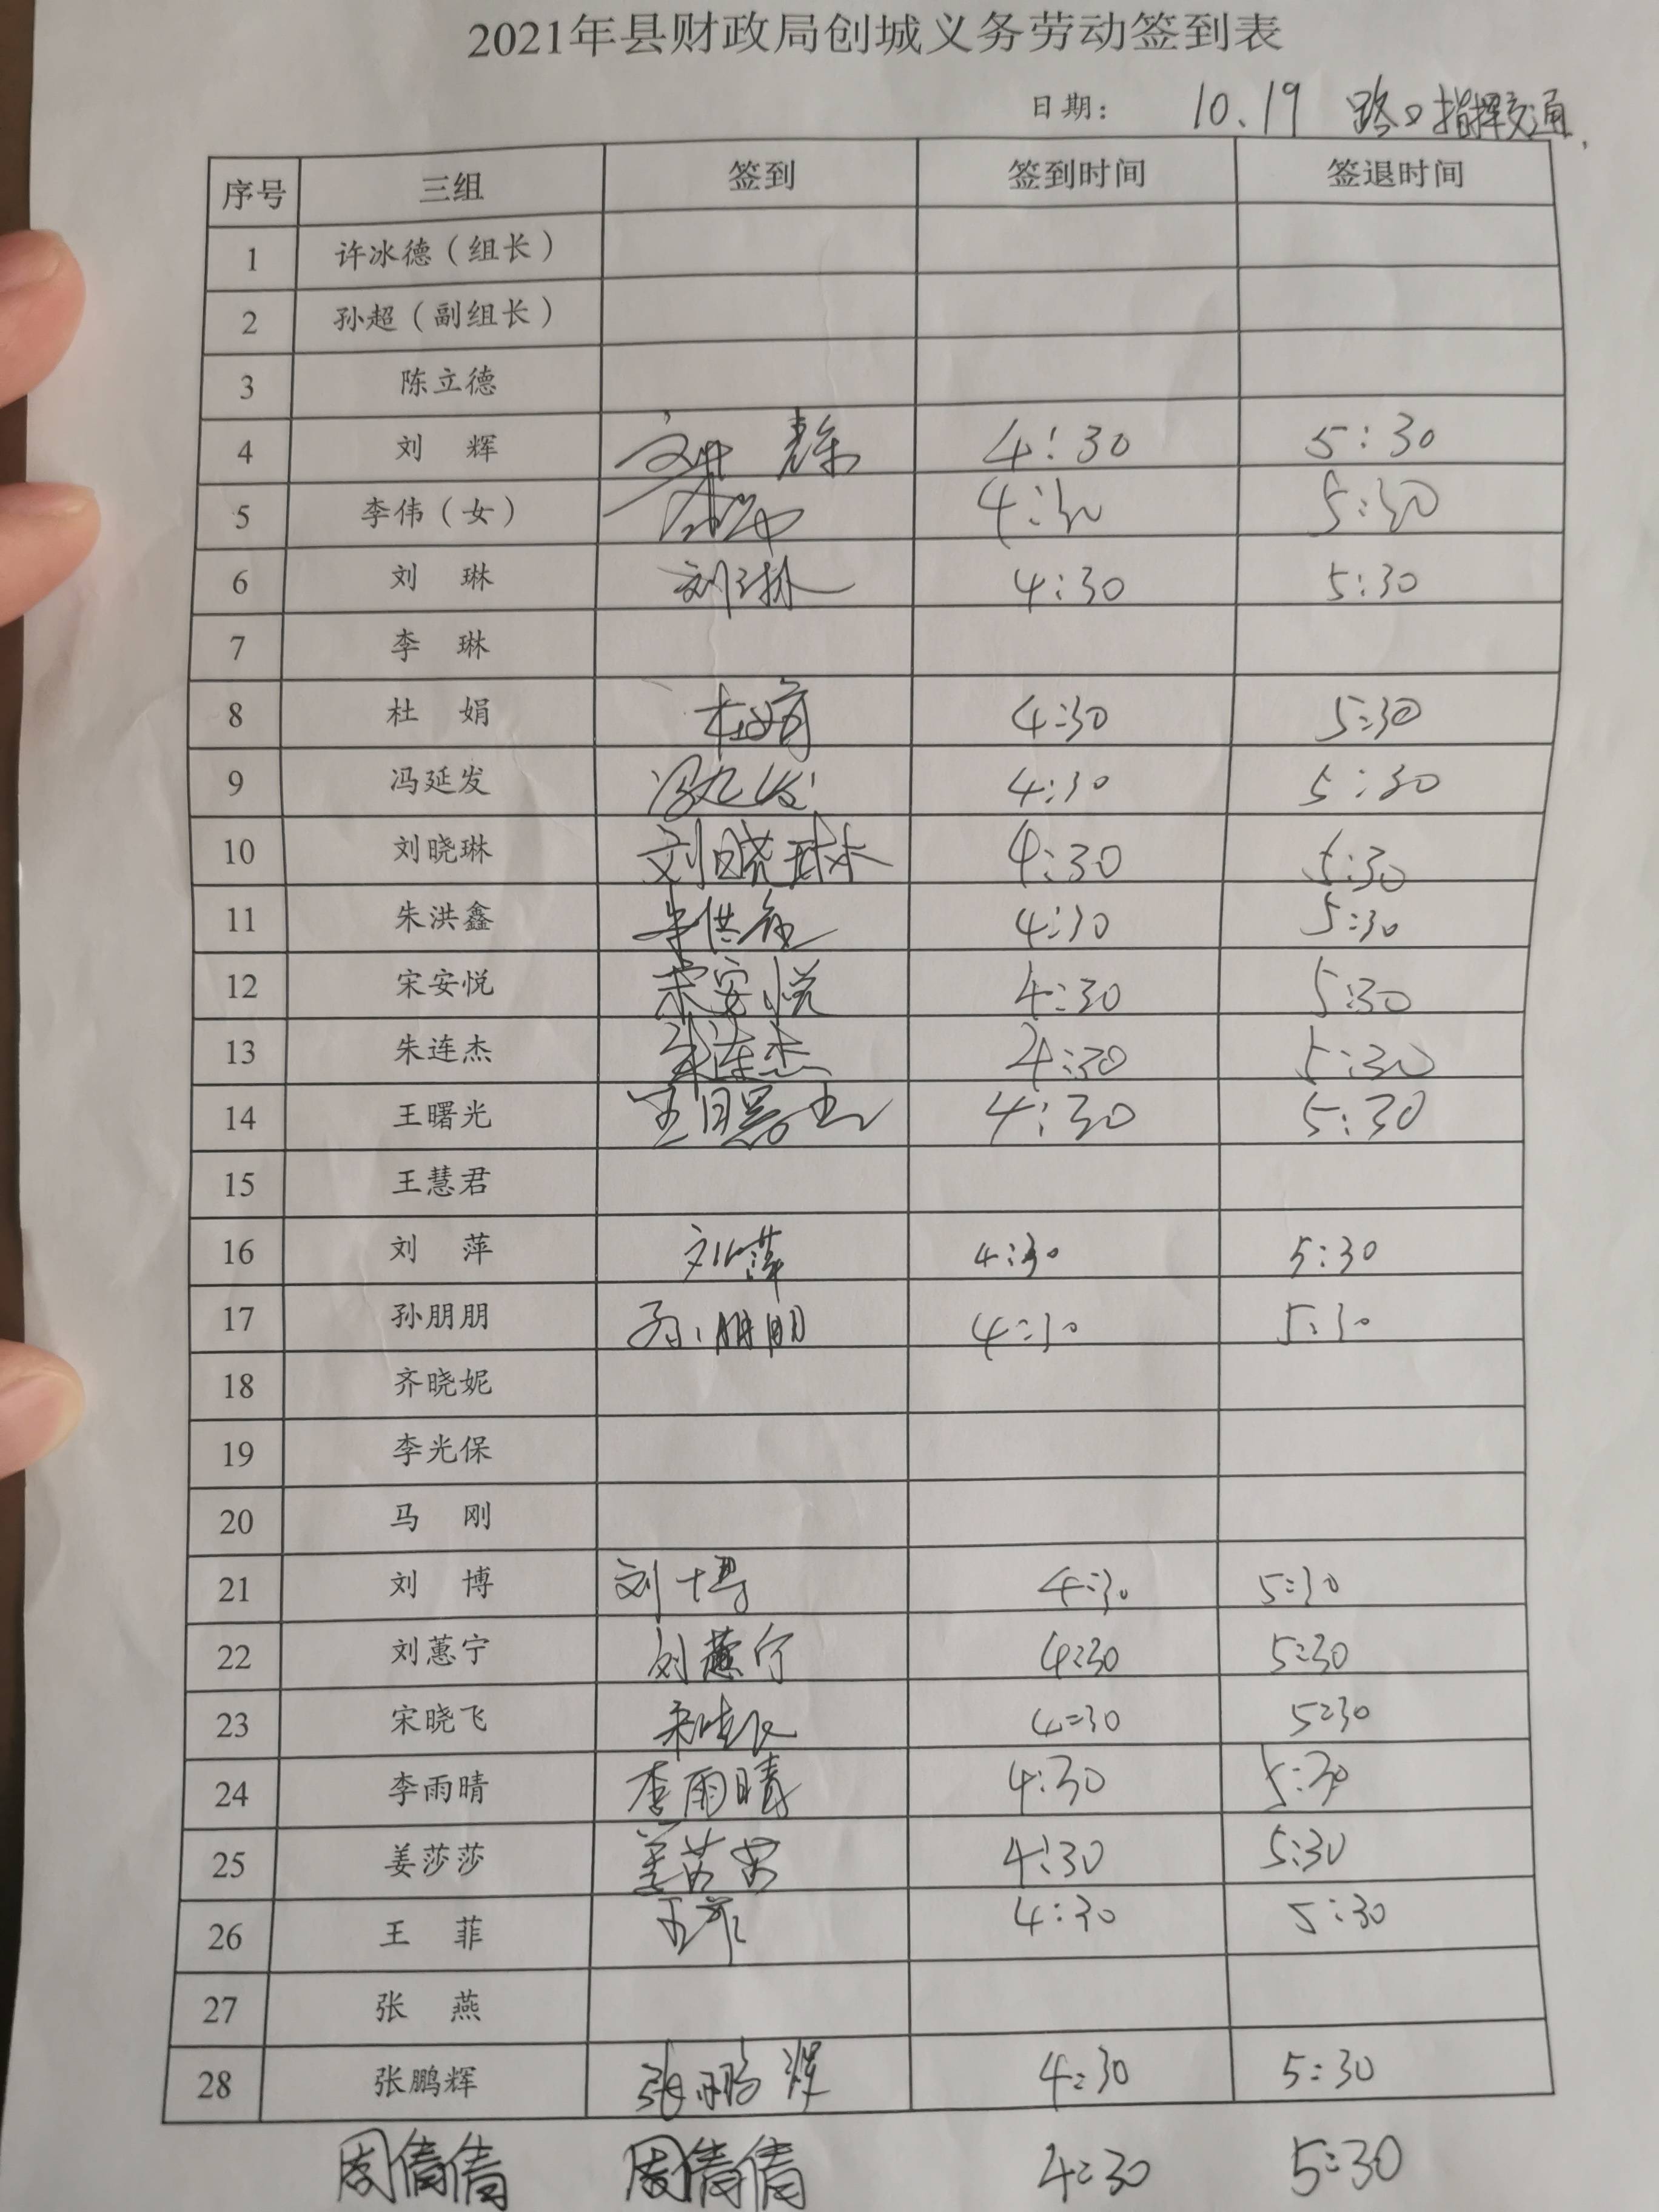 2021年县财政局创城义务劳动签到表
日期： 10.19 路口指挥交通
序号 三组 签到 签到时间 签退时间
1 许冰德（组长）
2 孙超（副组长）
3 陈立德
4 刘 辉 4:30 5:30
5 李伟（女） 李伟 4:30 5:30
6 刘 琳 刘琳 4:30 5:30
7 李 琳
8 杜 娟 杜娟 4:30 5:30
9 冯延发 冯延发 4:30 5:30
10 刘晓琳 刘晓琳 4:30 5:30
11 朱洪鑫 朱洪鑫 4:30 5:30
12 宋安悦 宋安悦 4:30 5:30
13 朱连杰 朱连杰 4:30 5:30
14 王曙光 王曙光 4:30 5:30
15 王慧君
16 刘 萍 刘萍 4:30 5:30
17 孙朋朋 孙朋朋 4:30 5:30
18 齐晓妮
19 李光保
20 马 刚
21 刘 博 刘博 4:30 5:30
22 刘蕙宁 刘蕙宁 4:30 5:30
23 宋晓飞 宋晓飞 4:30 5:30
24 李雨晴 李雨晴 4:30 5:30
25 姜莎莎 姜莎莎 4:30 5:30
26 王 菲 王菲 4:30 5:30
27 张 燕
28 张鹏辉 张鹏辉 4:30 5:30
周倩倩 周倩倩 4:30 5:30